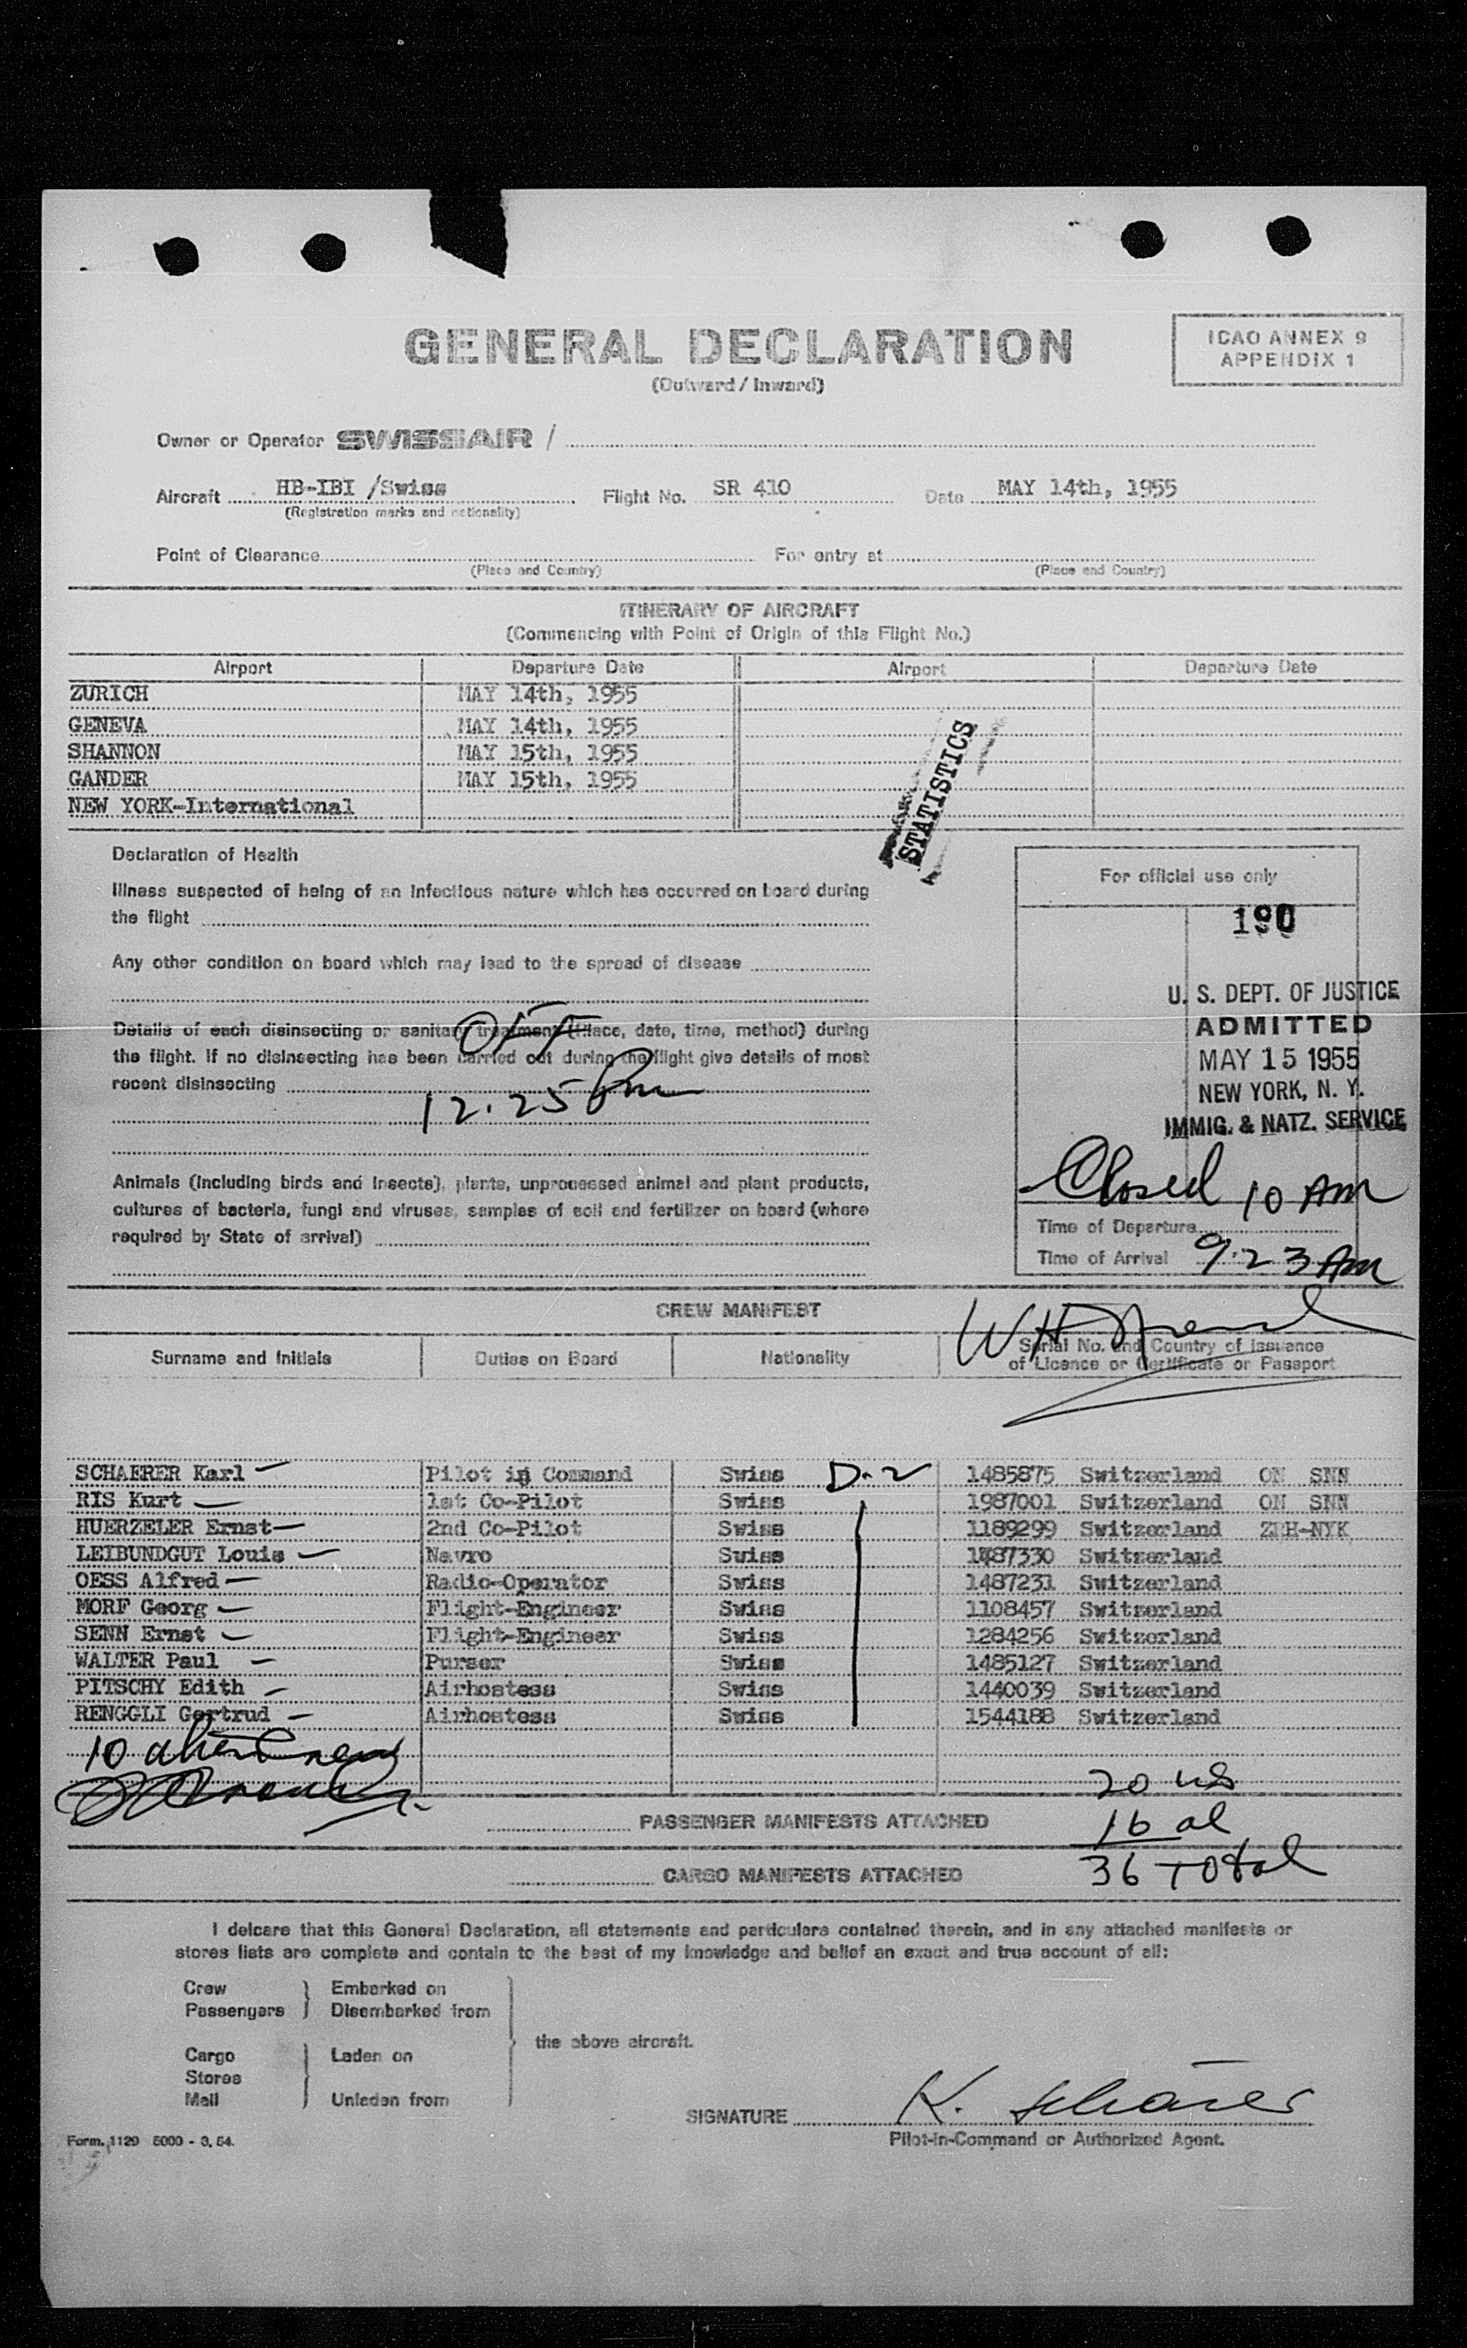 GENERAL DECLARATION
(Outward / Inward)
ICAO ANNEX 9
APPENDIX 1
Owner or Operator SWISSAIR /
Aircraft HB-IBI /Swiss Flight No. SR 410 Date MAY 14th, 1955
(Registration marks and nationality)
Point of Clearance For entry at
(Place and Country) (Place and Country)
ITINERARY OF AIRCRAFT
(Commencing with Point of Origin of this Flight No.)
Airport Departure Date Airport Departure Date
ZURICH MAY 14th, 1955
GENEVA MAY 14th, 1955
SHANNON MAY 15th, 1955
GANDER MAY 15th, 1955
NEW YORK-International
STATISTICS
Declaration of Health
Illness suspected of being of an infectious nature which has occurred on board during
the flight
Any other condition on board which may lead to the spread of disease
Details of each disinsecting or sanitary treatment (Place, date, time, method) during
the flight. If no disinsecting has been carried out during the flight give details of most
recent disinsecting
12.25 Pm
Animals (including birds and insects), plants, unprocessed animal and plant products,
cultures of bacteria, fungi and viruses, samples of soil and fertilizer on board (where
required by State of arrival)
For official use only
190
U. S. DEPT. OF JUSTICE
ADMITTED
MAY 15 1955
NEW YORK, N. Y.
IMMIG. & NATZ. SERVICE
Closed 10 AM
Time of Departure
Time of Arrival 9.23 AM
CREW MANIFEST
Surname and Initials Duties on Board Nationality Serial No. and Country of Issuance
of Licence or Certificate or Passport
SCHAERER Karl Pilot in Command Swiss D-2 1485875 Switzerland ON SNN
RIS Kurt 1st Co-Pilot Swiss 1987001 Switzerland ON SNN
HUERZELER Ernst 2nd Co-Pilot Swiss 1189299 Switzerland ZRH-NYK
LEIBUNDGUT Louis Navro Swiss 1487330 Switzerland
OESS Alfred Radio-Operator Swiss 1487231 Switzerland
MORF Georg Flight-Engineer Swiss 1108457 Switzerland
SENN Ernst Flight-Engineer Swiss 1284256 Switzerland
WALTER Paul Purser Swiss 1485127 Switzerland
PITSCHY Edith Airhostess Swiss 1440039 Switzerland
RENGGLI Gertrud Airhostess Swiss 1544188 Switzerland
10 alien crew
20 us
PASSENGER MANIFESTS ATTACHED 16 al
CARGO MANIFESTS ATTACHED 36 Total
I delcare that this General Declaration, all statements and particulars contained therein, and in any attached manifests or
stores lists are complete and contain to the best of my knowledge and belief an exact and true account of all:
Crew Embarked on
Passengers Disembarked from
the above aircraft.
Cargo Laden on
Stores
Mail Unladen from
SIGNATURE K. Schärer
Pilot-in-Command or Authorized Agent.
Form. 1129 5000 - 3. 54.